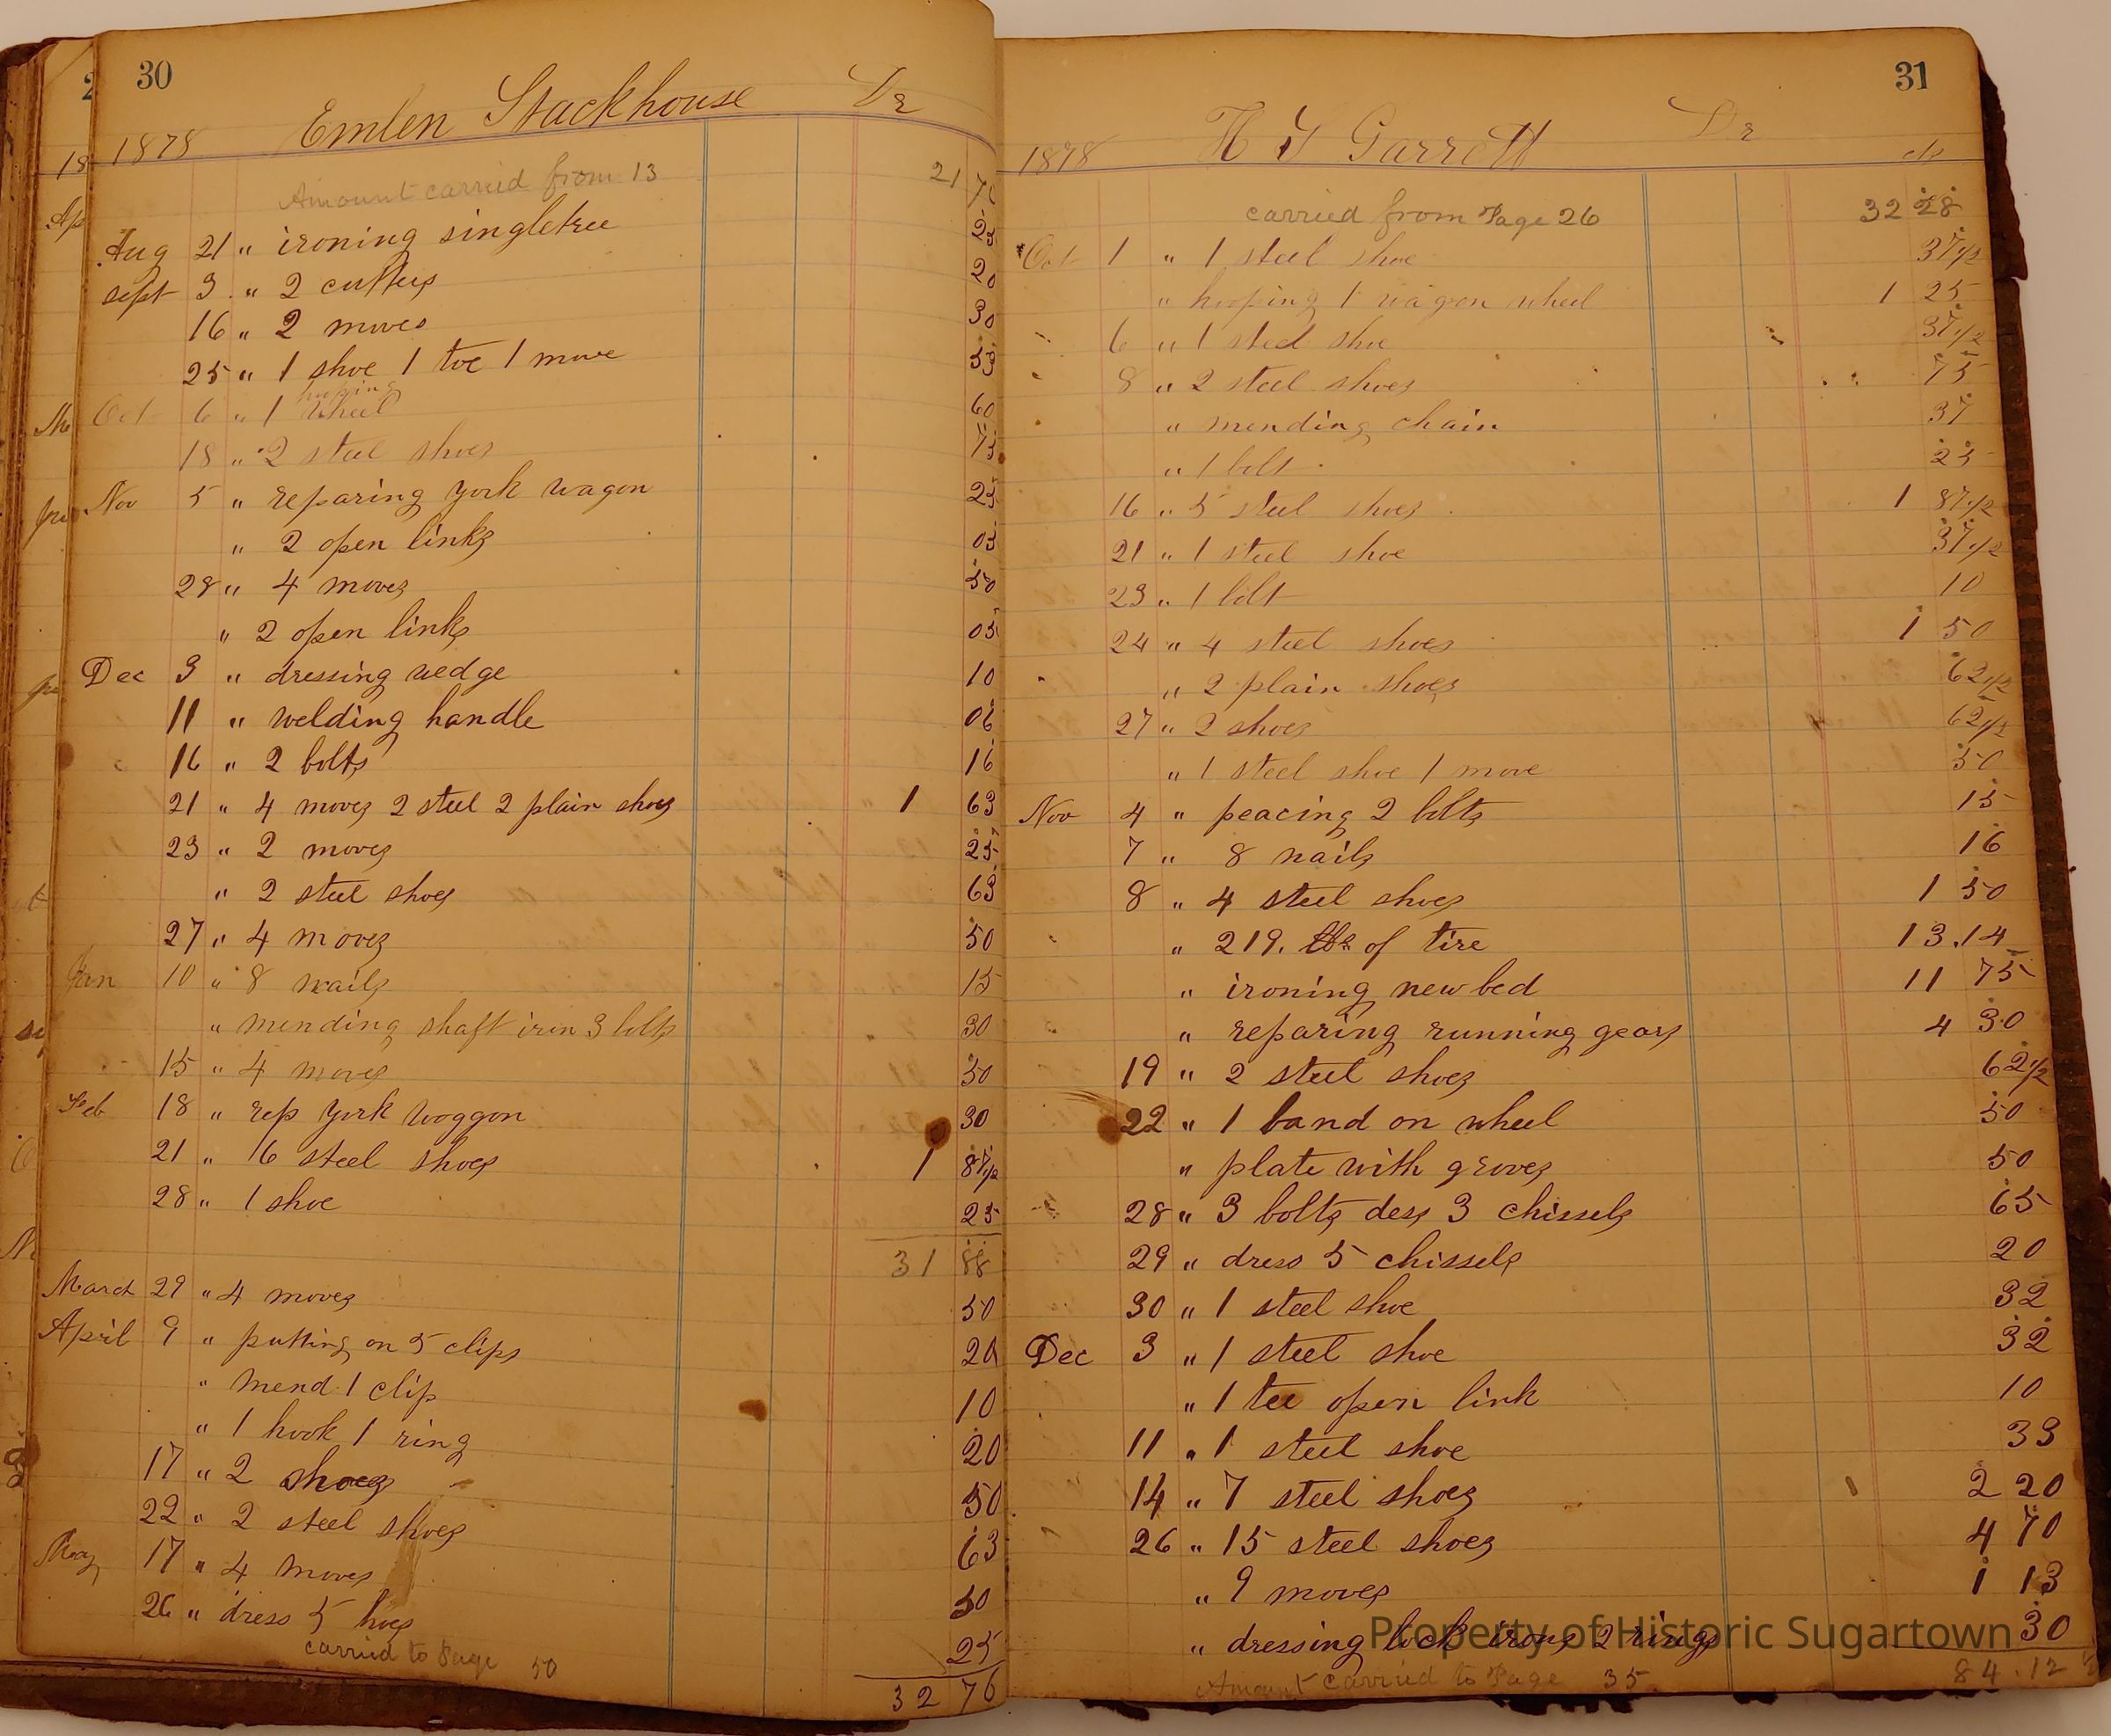 30
Emlen Stackhouse Dr
1878
Amount carried from 13 21 70
Aug 21 " ironing singletree 25
sept 3 " 2 cutters 20
16 " 2 moves 30
25 " 1 shoe 1 toe 1 move 53
hooping
Oct 6 " 1 wheel 60
18 " 2 steel shoes 75
Nov 5 " reparing york wagon 25
" 2 open links 05
28 " 4 moves 50
" 2 open links 05
Dec 3 " dressing wedge 10
11 " welding handle 06
16 " 2 bolts 16
21 " 4 moves 2 steel 2 plain shoes 1 63
23 " 2 moves 25
" 2 steel shoes 63
27 " 4 moves 50
Jan 10 " 8 nails 15
" mending shaft iron 3 bolts 30
15 " 4 moves 50
Feb 18 " rep york woggon 30
21 " 6 steel shoes 1 87 1/2
28 " 1 shoe 25
31 88
March 29 " 4 moves 50
April 9 " putting on 5 clips 20
" mend 1 clip 10
" 1 hook 1 ring 20
17 " 2 shoes 50
22 " 2 steel shoes 63
May 17 " 4 moves 50
26 " dress 5 hoes 25
carried to Page 50
32 76
31
H Y Garrett Dr
1878 cts
carried from Page 26 32 28
Oct 1 " 1 steel shoe 37 1/2
" hooping 1 wagon wheel 1 25
6 " 1 steel shoe 37 1/2
8 " 2 steel shoes 75
" mending chain 37
" 1 bolt 25
16 " 5 steel shoes 1 87 1/2
21 " 1 steel shoe 37 1/2
23 " 1 bolt 10
24 " 4 steel shoes 1 50
" 2 plain shoes 62 1/2
27 " 2 shoes 62 1/2
" 1 steel shoe 1 move 50
Nov 4 " peacing 2 bolts 15
7 " 8 nails 16
8 " 4 steel shoes 1 50
" 219. lbs of tire 13.14
" ironing new bed 11 75
" reparing running gears 4 30
19 " 2 steel shoes 62 1/2
22 " 1 band on wheel 50
" plate with groves 50
28 " 3 bolts dess 3 chissels 65
29 " dress 5 chissels 20
30 " 1 steel shoe 32
Dec 3 " 1 steel shoe 32
" 1 tee open link 10
11 " 1 steel shoe 33
14 " 7 steel shoes 2 20
26 " 15 steel shoes 4 70
" 9 moves 1 13
" dressing lock irons 2 rings 30
Amount carried to Page 35 84.12
Property of Historic Sugartown